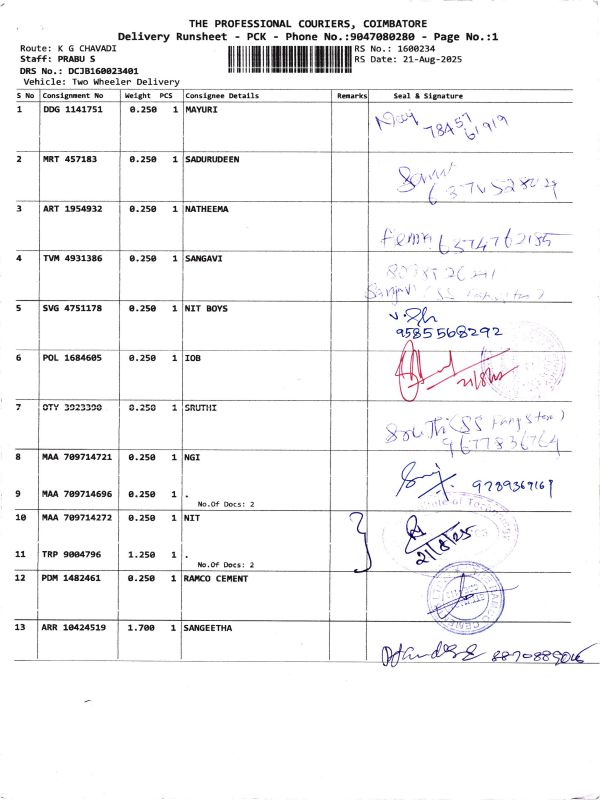 THE PROFESSIONAL COURIERS, COIMBATORE
Delivery Runsheet - PCK - Phone No.:9047080280 - Page No.:1
Route: K G CHAVADI
RS No.: 1600234
Staff: PRABU S
RS Date: 21-Aug-2025
DRS No.: DCJB160023401
Vehicle: Two Wheeler Delivery
S No Consignment No Weight PCS Consignee Details Remarks Seal & Signature
1 DDG 1141751 0.250 1 MAYURI
78457
61919
2 MRT 457183 0.250 1 SADURUDEEN
3 ART 1954932 0.250 1 NATHEEMA
6374762185
4 TVM 4931386 0.250 1 SANGAVI
Sangavi (SS
5 SVG 4751178 0.250 1 NIT BOYS
9585568292
6 POL 1684605 0.250 1 IOB
21/8/25
7 OTY 3923390 0.250 1 SRUTHI
Sruthi (SS
9677836764
8 MAA 709714721 0.250 1 NGI
9789369161
9 MAA 709714696 0.250 1 .
No.Of Docs: 2
10 MAA 709714272 0.250 1 NIT
21/8/25
11 TRP 9004796 1.250 1 .
No.Of Docs: 2
12 PDM 1482461 0.250 1 RAMCO CEMENT
13 ARR 10424519 1.700 1 SANGEETHA
8870889016